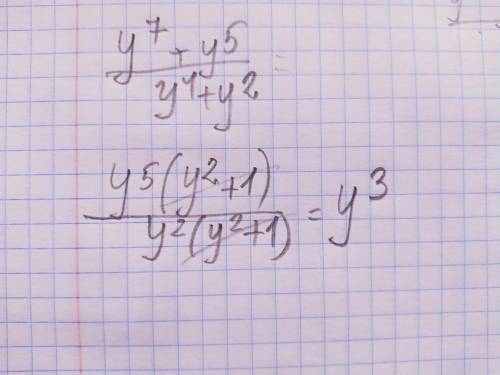 y⁷ + y⁵ / y⁴ + y² =
y⁵(y² + 1) / y²(y² + 1) = y³